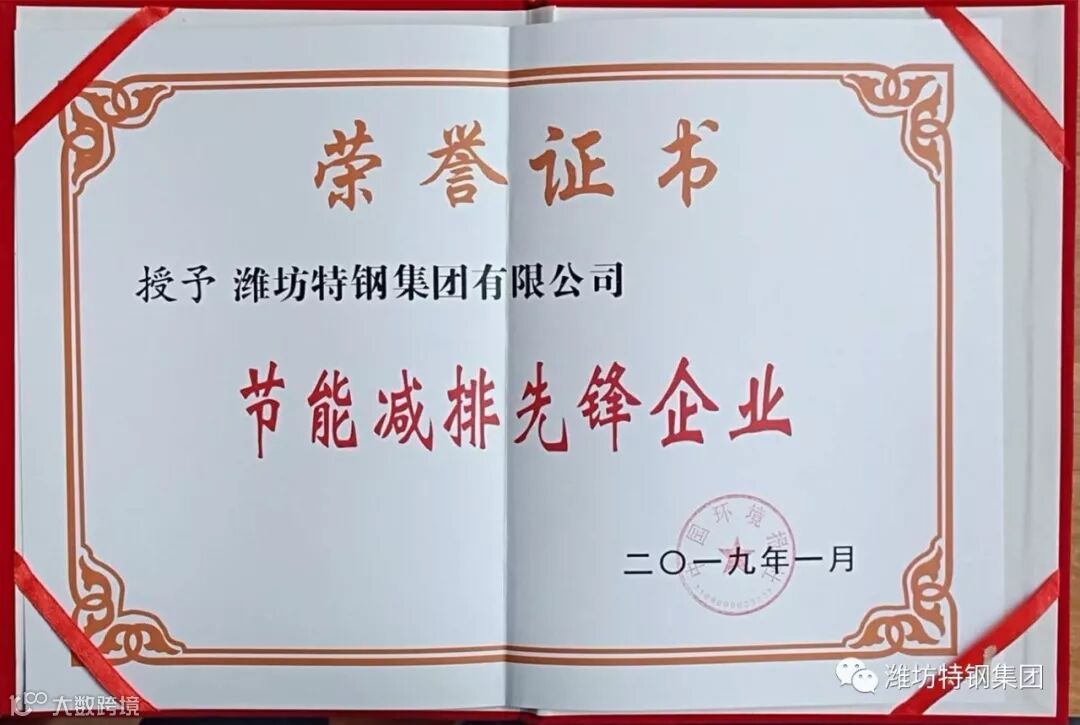 荣誉证书
授予 潍坊特钢集团有限公司
节能减排先锋企业
中国环境报社
二〇一九年一月
潍坊特钢集团
大数跨境